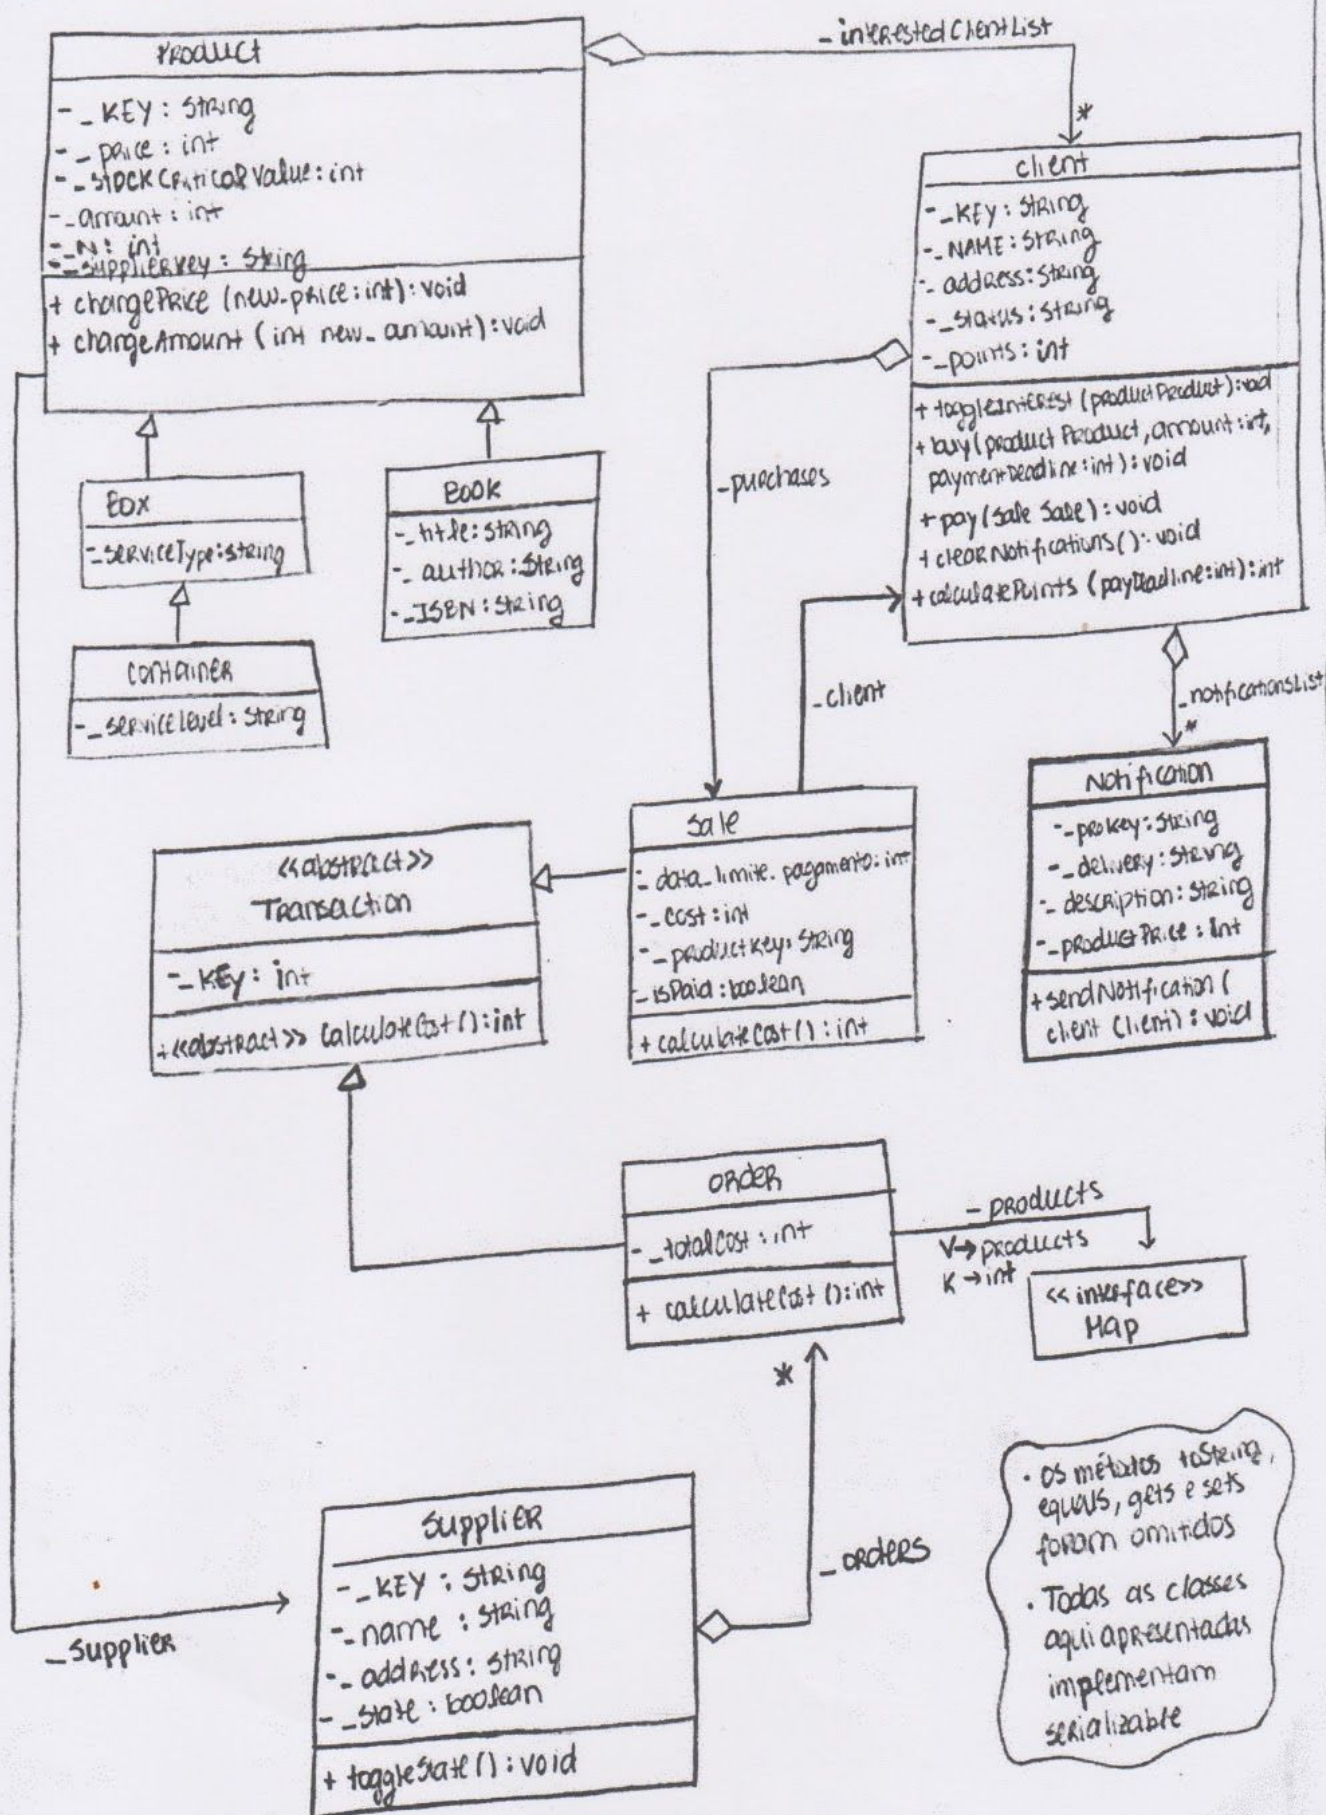 Product
- _KEY: String
- _price: int
- _STOCKCriticalValue: int
- _amount: int
- _N: int
- _supplierKey: String
+ changePrice (new_price: int): void
+ changeAmount (int new_amount): void
_interestedClientList
*
Client
- _KEY: String
- _NAME: String
- _address: String
- _status: String
- _points: int
+ toggleInterest (product Product): void
+ buy (product Product, amount: int,
paymentDeadline: int): void
+ pay (Sale Sale): void
+ clearNotifications(): void
+ calculatePoints (payDeadline: int): int
Box
- _serviceType: String
Book
- _title: String
- _author: String
- _ISBN: String
Container
- _serviceLevel: String
_purchases
_client
_notificationsList
*
Notification
- _proKey: String
- _delivery: String
- _description: String
- _productPrice: int
+ sendNotification (
client Client): void
Sale
- _data_limite_pagamento: int
- _cost: int
- _productKey: String
- _isPaid: boolean
+ calculateCost(): int
<<abstract>>
Transaction
- _KEY: int
+ <<abstract>> calculateCost(): int
Order
- _totalCost: int
+ calculateCost(): int
_products
V → products
K → int
<<interface>>
Map
*
_orders
Supplier
- _KEY: String
- _name: String
- _address: String
- _state: boolean
+ toggleState(): void
_supplier
· Os métodos toString,
equals, gets e sets
foram omitidos
· Todas as classes
aqui apresentadas
implementam
serializable